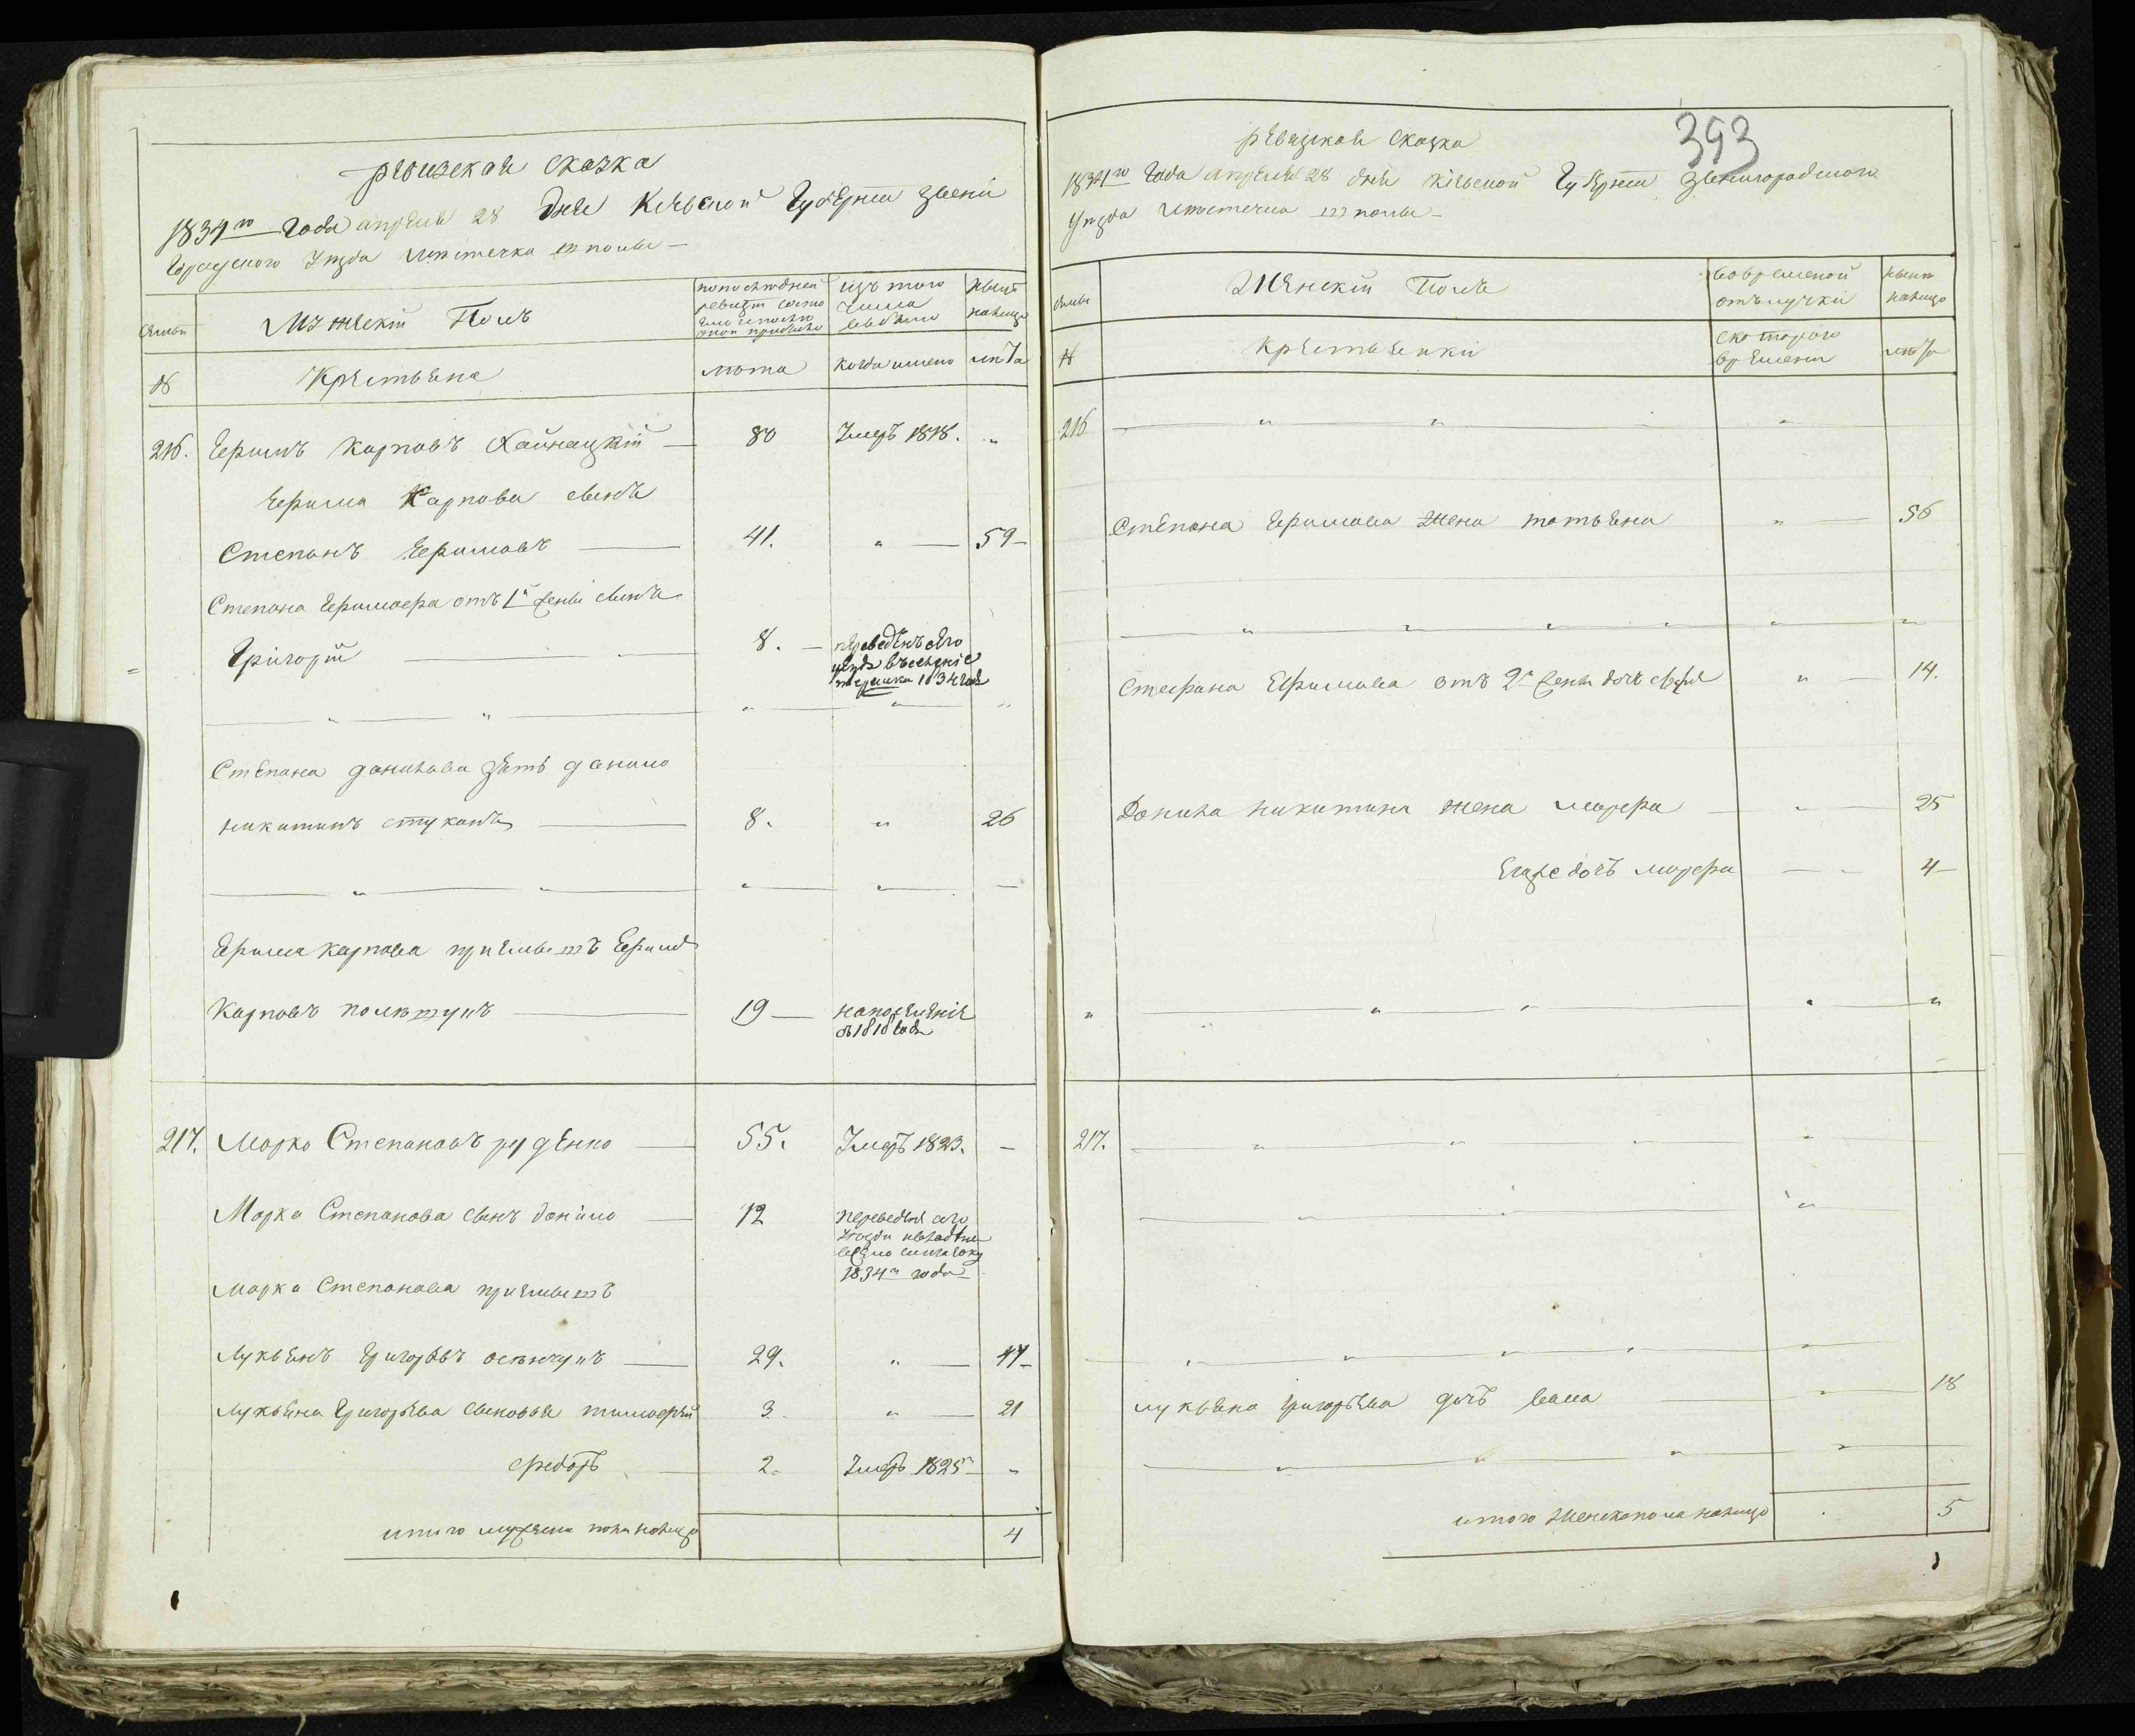 ревизская сказка
1834го Года апреля 28 Дня Киевской Губернии Звени
Городского Уезда местечка шполы
семьи
Мужеский Полъ
по последней ревизии состо
из того числа выбыло
ныне налицо
№
Крестьяне
лета
когда имено
лета
216.
Ефимъ Карповъ Хайнацкий
80
Умеръ 1818.
"
Ефима Карпова сынъ
Степанъ Ефимовъ
41.
"
59
Степана Ефимова отъ 1й жены сынъ
Григорий
8.
1834 года
Степана данилова зять данило
никитинъ стуканъ
8.
"
26
Ефима Карпова приемышъ Ефимъ
Карповъ
19
1818 года
217.
Марко Степановъ руденко
55.
Умеръ 1823.
Марка Степанова сынъ данило
12
1834го года
Марка Степанова приемышъ
Лукьянъ Григорьевъ
29.
"
47
Лукьяна Григорьева сыновья тимофей
3.
"
21
федоръ
2.
Умеръ 1825
"
итого мужеска пола налицо
4
393
ревизкая сказка
1834го Года апреля 28 дня Киевской Губернии Звенигородского
Уезда местечка шполы
семьи
Женский Полъ
во временой отълучки
ныне налицо
№
Крестьянки
с которого времени
лета
216
Степана Ефимова жена татьяна
"
56
Стефана Ефимова отъ 2й жены дочь
"
14.
Данила никитина жена марфа
25
Егаже дочь марфа
4
217.
лукьяна григорьева дочь
18
итого женска пола налицо
5